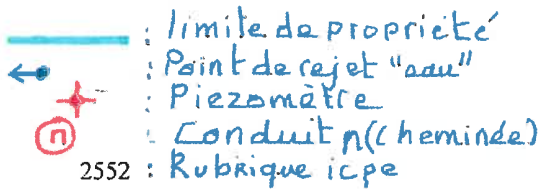 : limite de propriété
: Point de rejet "eau"
: Piezomètre
n : Conduit n (Cheminée)
2552 : Rubrique icpe